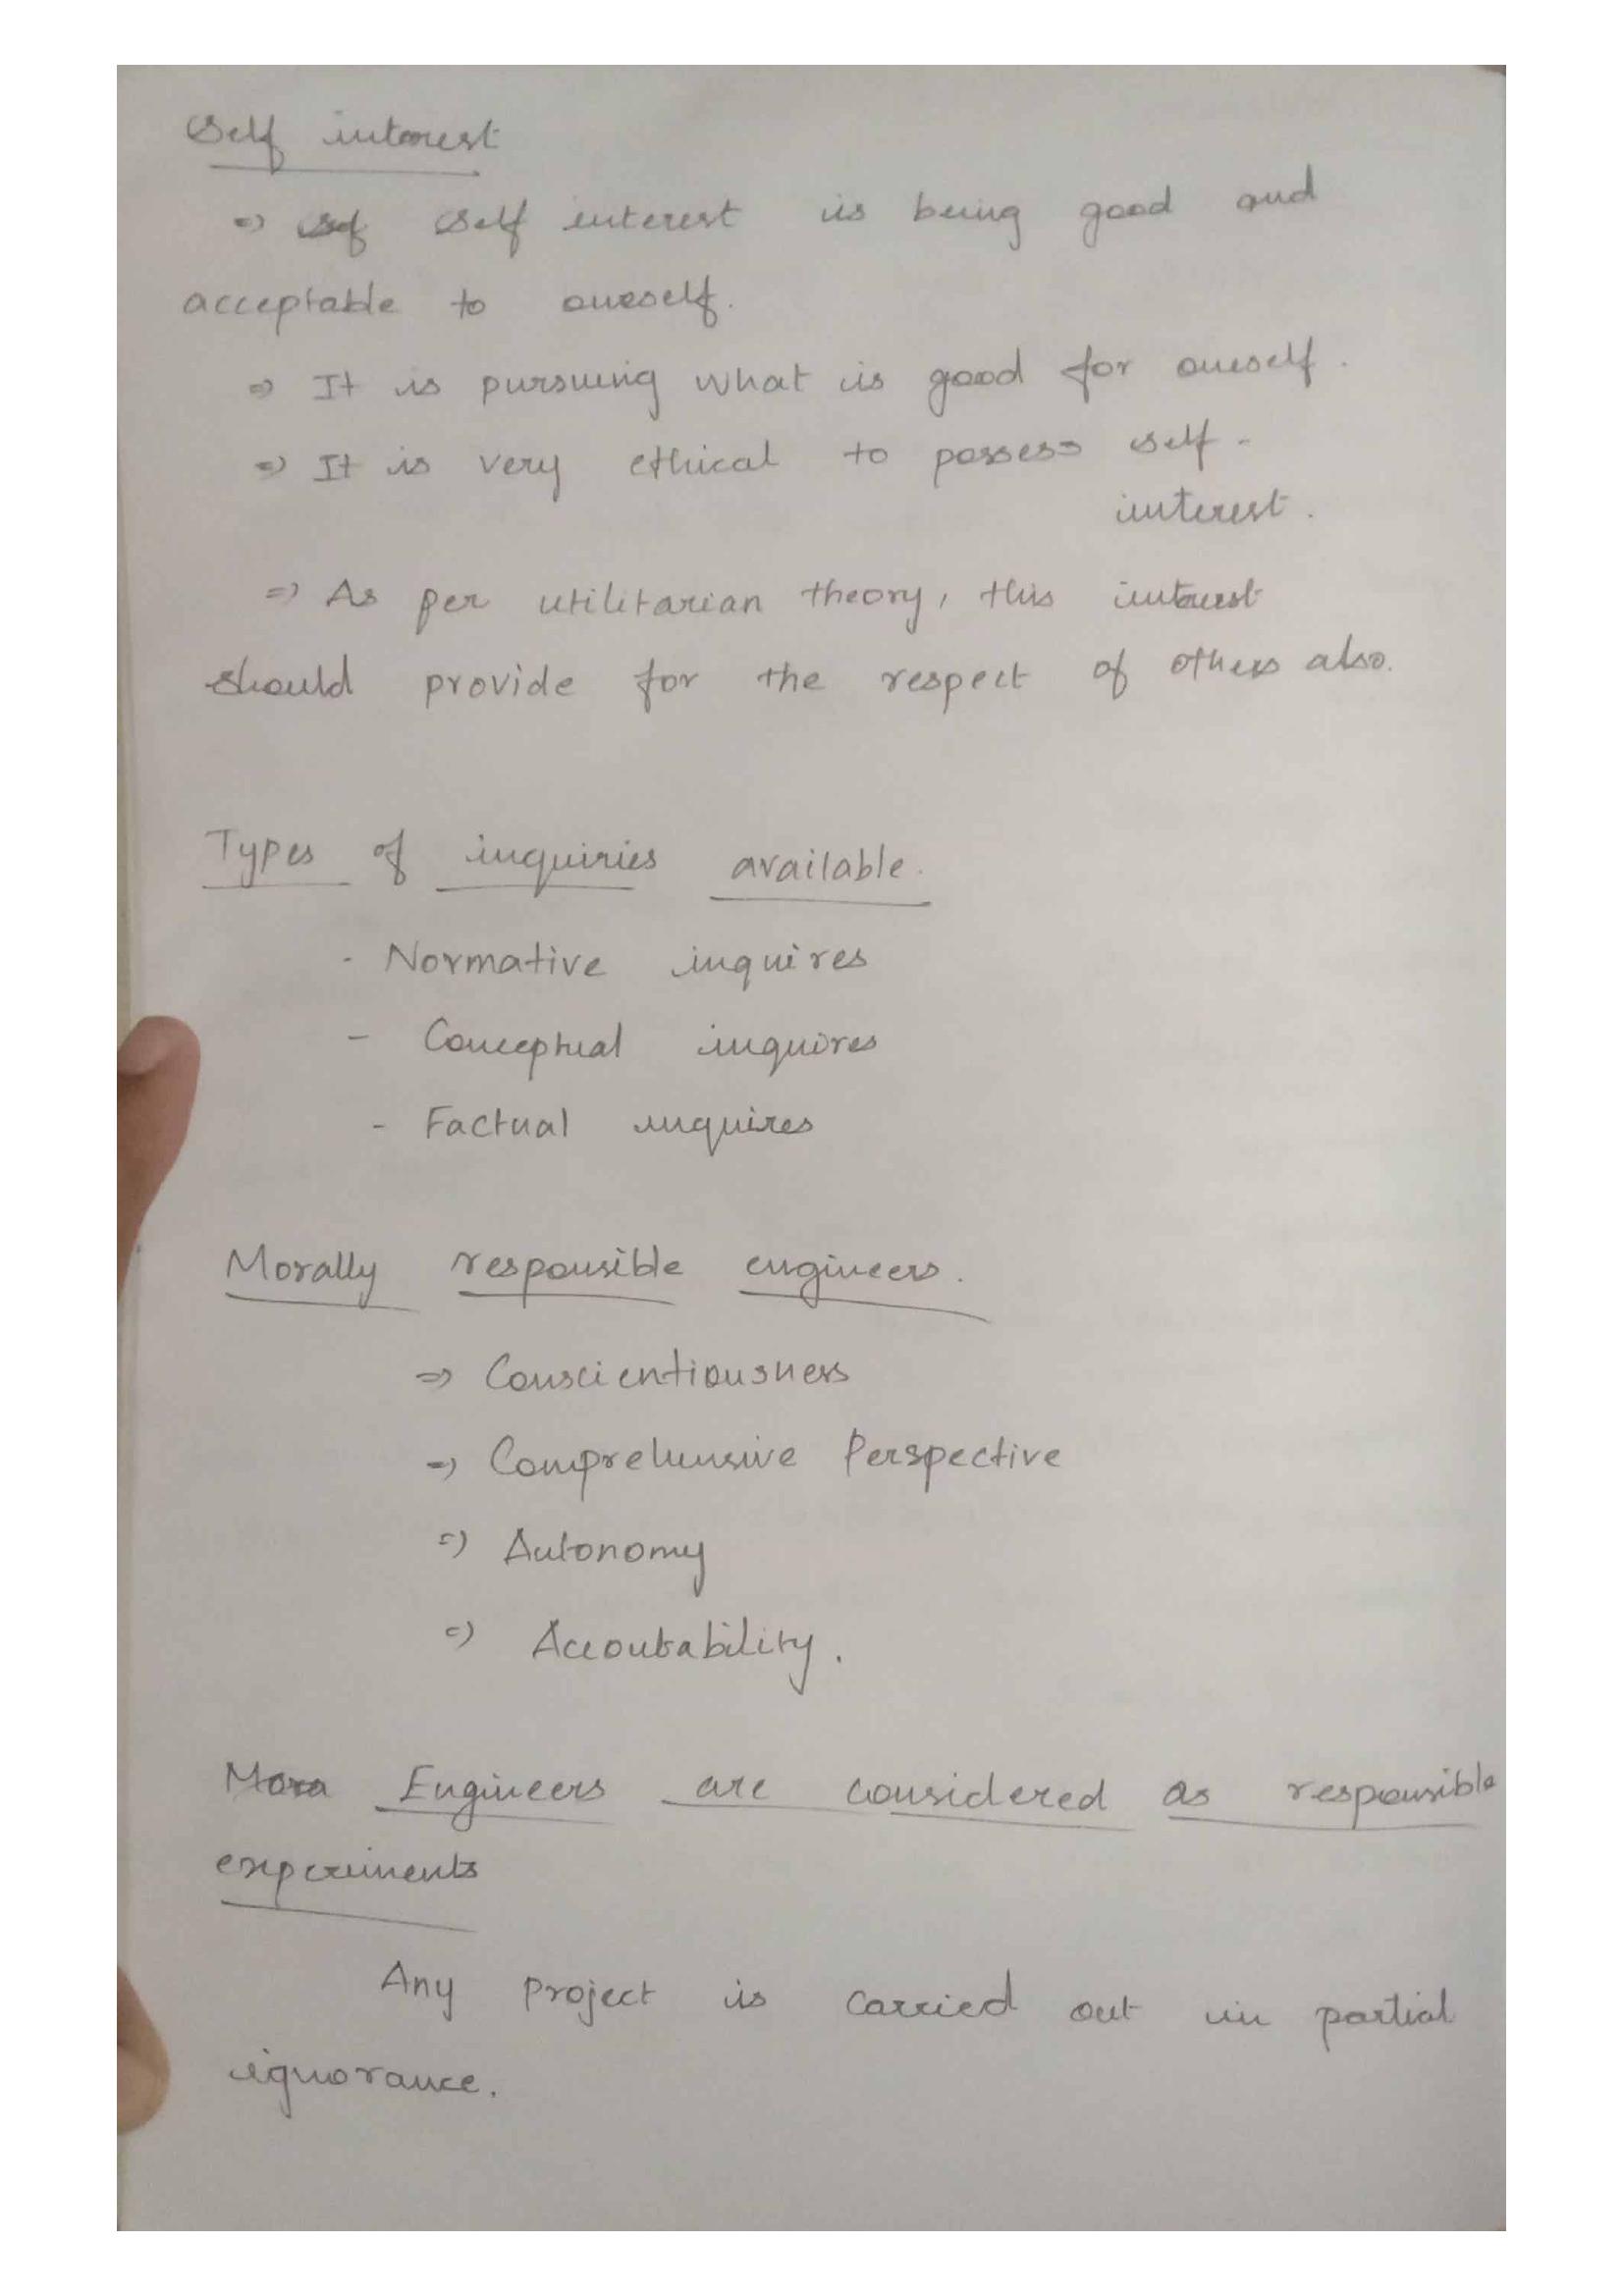 Self interest
=> Self interest is being good and
acceptable to oneself.
=> It is pursuing what is good for oneself.
=> It is very ethical to possess self-
interest.
=> As per utilitarian theory, this interest
should provide for the respect of others also.
Types of inquiries available.
- Normative inquires
- Conceptual inquires
- Factual inquires
Morally responsible engineers.
=> Conscientiousness
=> Comprehensive Perspective
=> Autonomy
=> Accoutability.
Mora Engineers are considered as responsible
experiments
Any project is carried out in partial
ignorance.